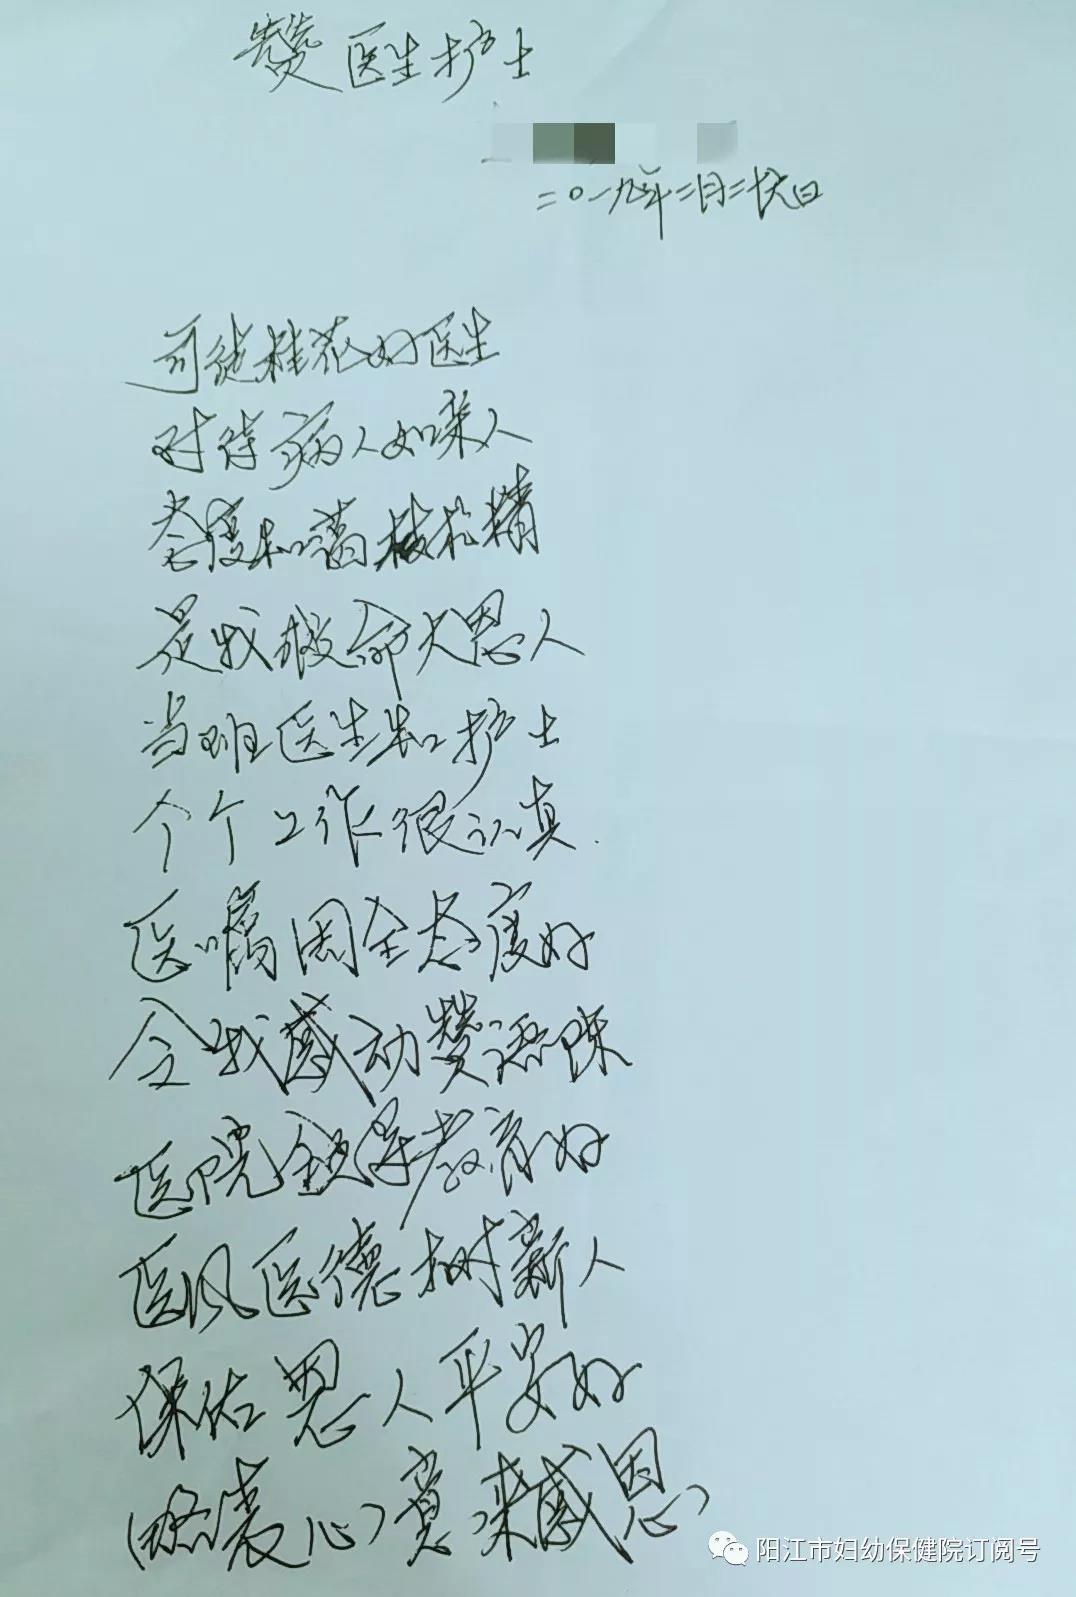 赞医生护士
二〇一九年二月二十六日
司徒桂花好医生
对待病人如亲人
态度和蔼技术精
是我救命大恩人
当班医生和护士
个个工作很认真
医嘱周全态度好
令我感动赞语
医院领导教育好
医风医德树新人
保佑恩人平安好
(略表心)意来感恩
阳江市妇幼保健院订阅号